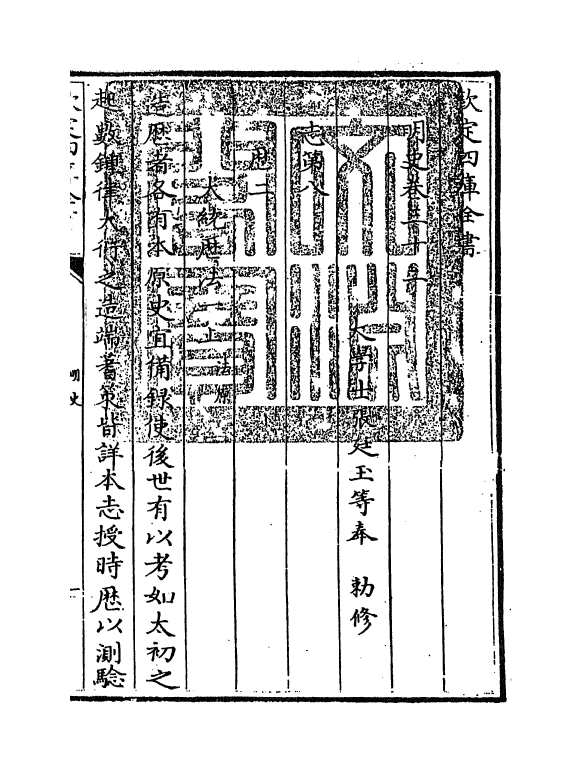 欽定四庫全書
明史卷三十二
大學士張廷玉等奉　勅修
志第八
歴二
大統歴法一上法原
造歴者各有本原史宜備録使後世有以考如太初之
起數鍾律大衍之造端蓍策皆詳本志授時歴以測驗
明史
一